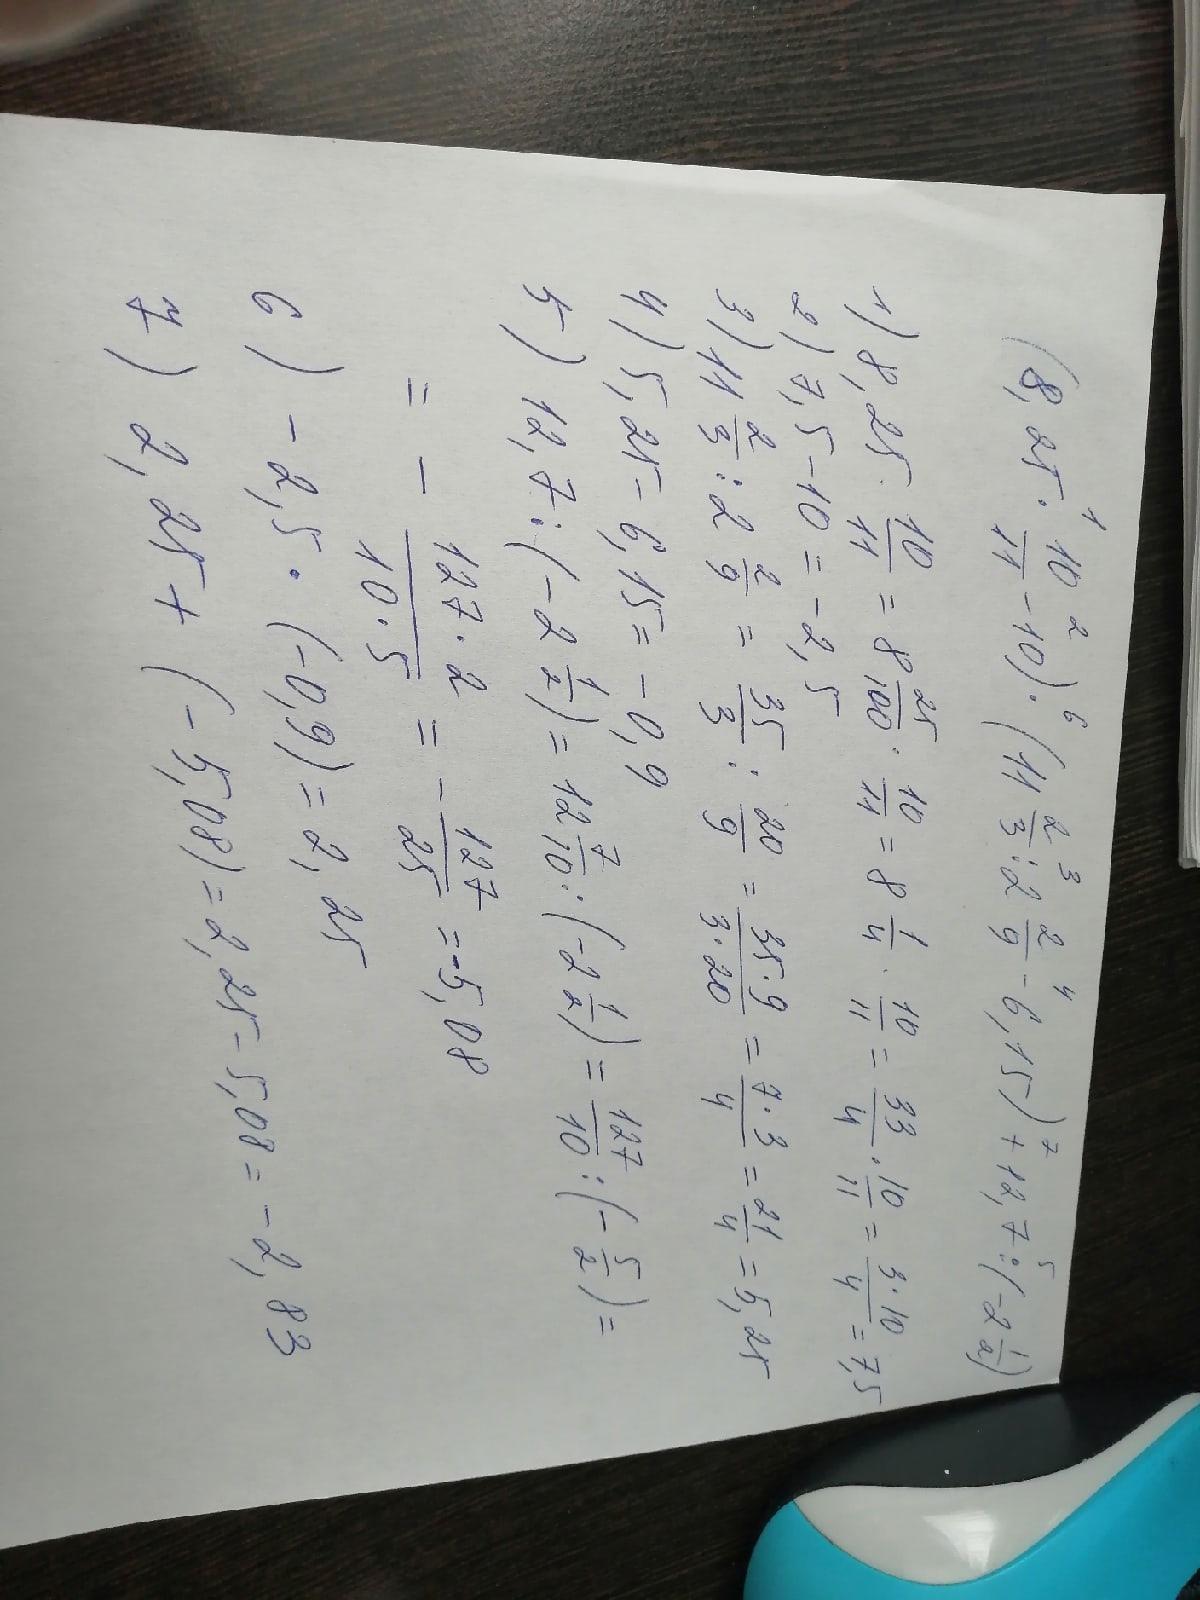 (8,25 · 10/11 - 10) · (11 2/3 : 2 2/9 - 6,15) + 12,7 : (-2 1/2)
1) 8,25 · 10/11 = 8 25/100 · 10/11 = 8 1/4 · 10/11 = 33/4 · 10/11 = 3·10/4 = 7,5
2) 7,5 - 10 = -2,5
3) 11 2/3 : 2 2/9 = 35/3 : 20/9 = 35·9/3·20 = 7·3/4 = 21/4 = 5,25
4) 5,25 - 6,15 = -0,9
5) 12,7 : (-2 1/2) = 12 7/10 : (-2 1/2) = 127/10 : (-5/2) =
= - 127·2/10·5 = - 127/25 = -5,08
6) -2,5 · (-0,9) = 2,25
7) 2,25 + (-5,08) = 2,25 - 5,08 = -2,83